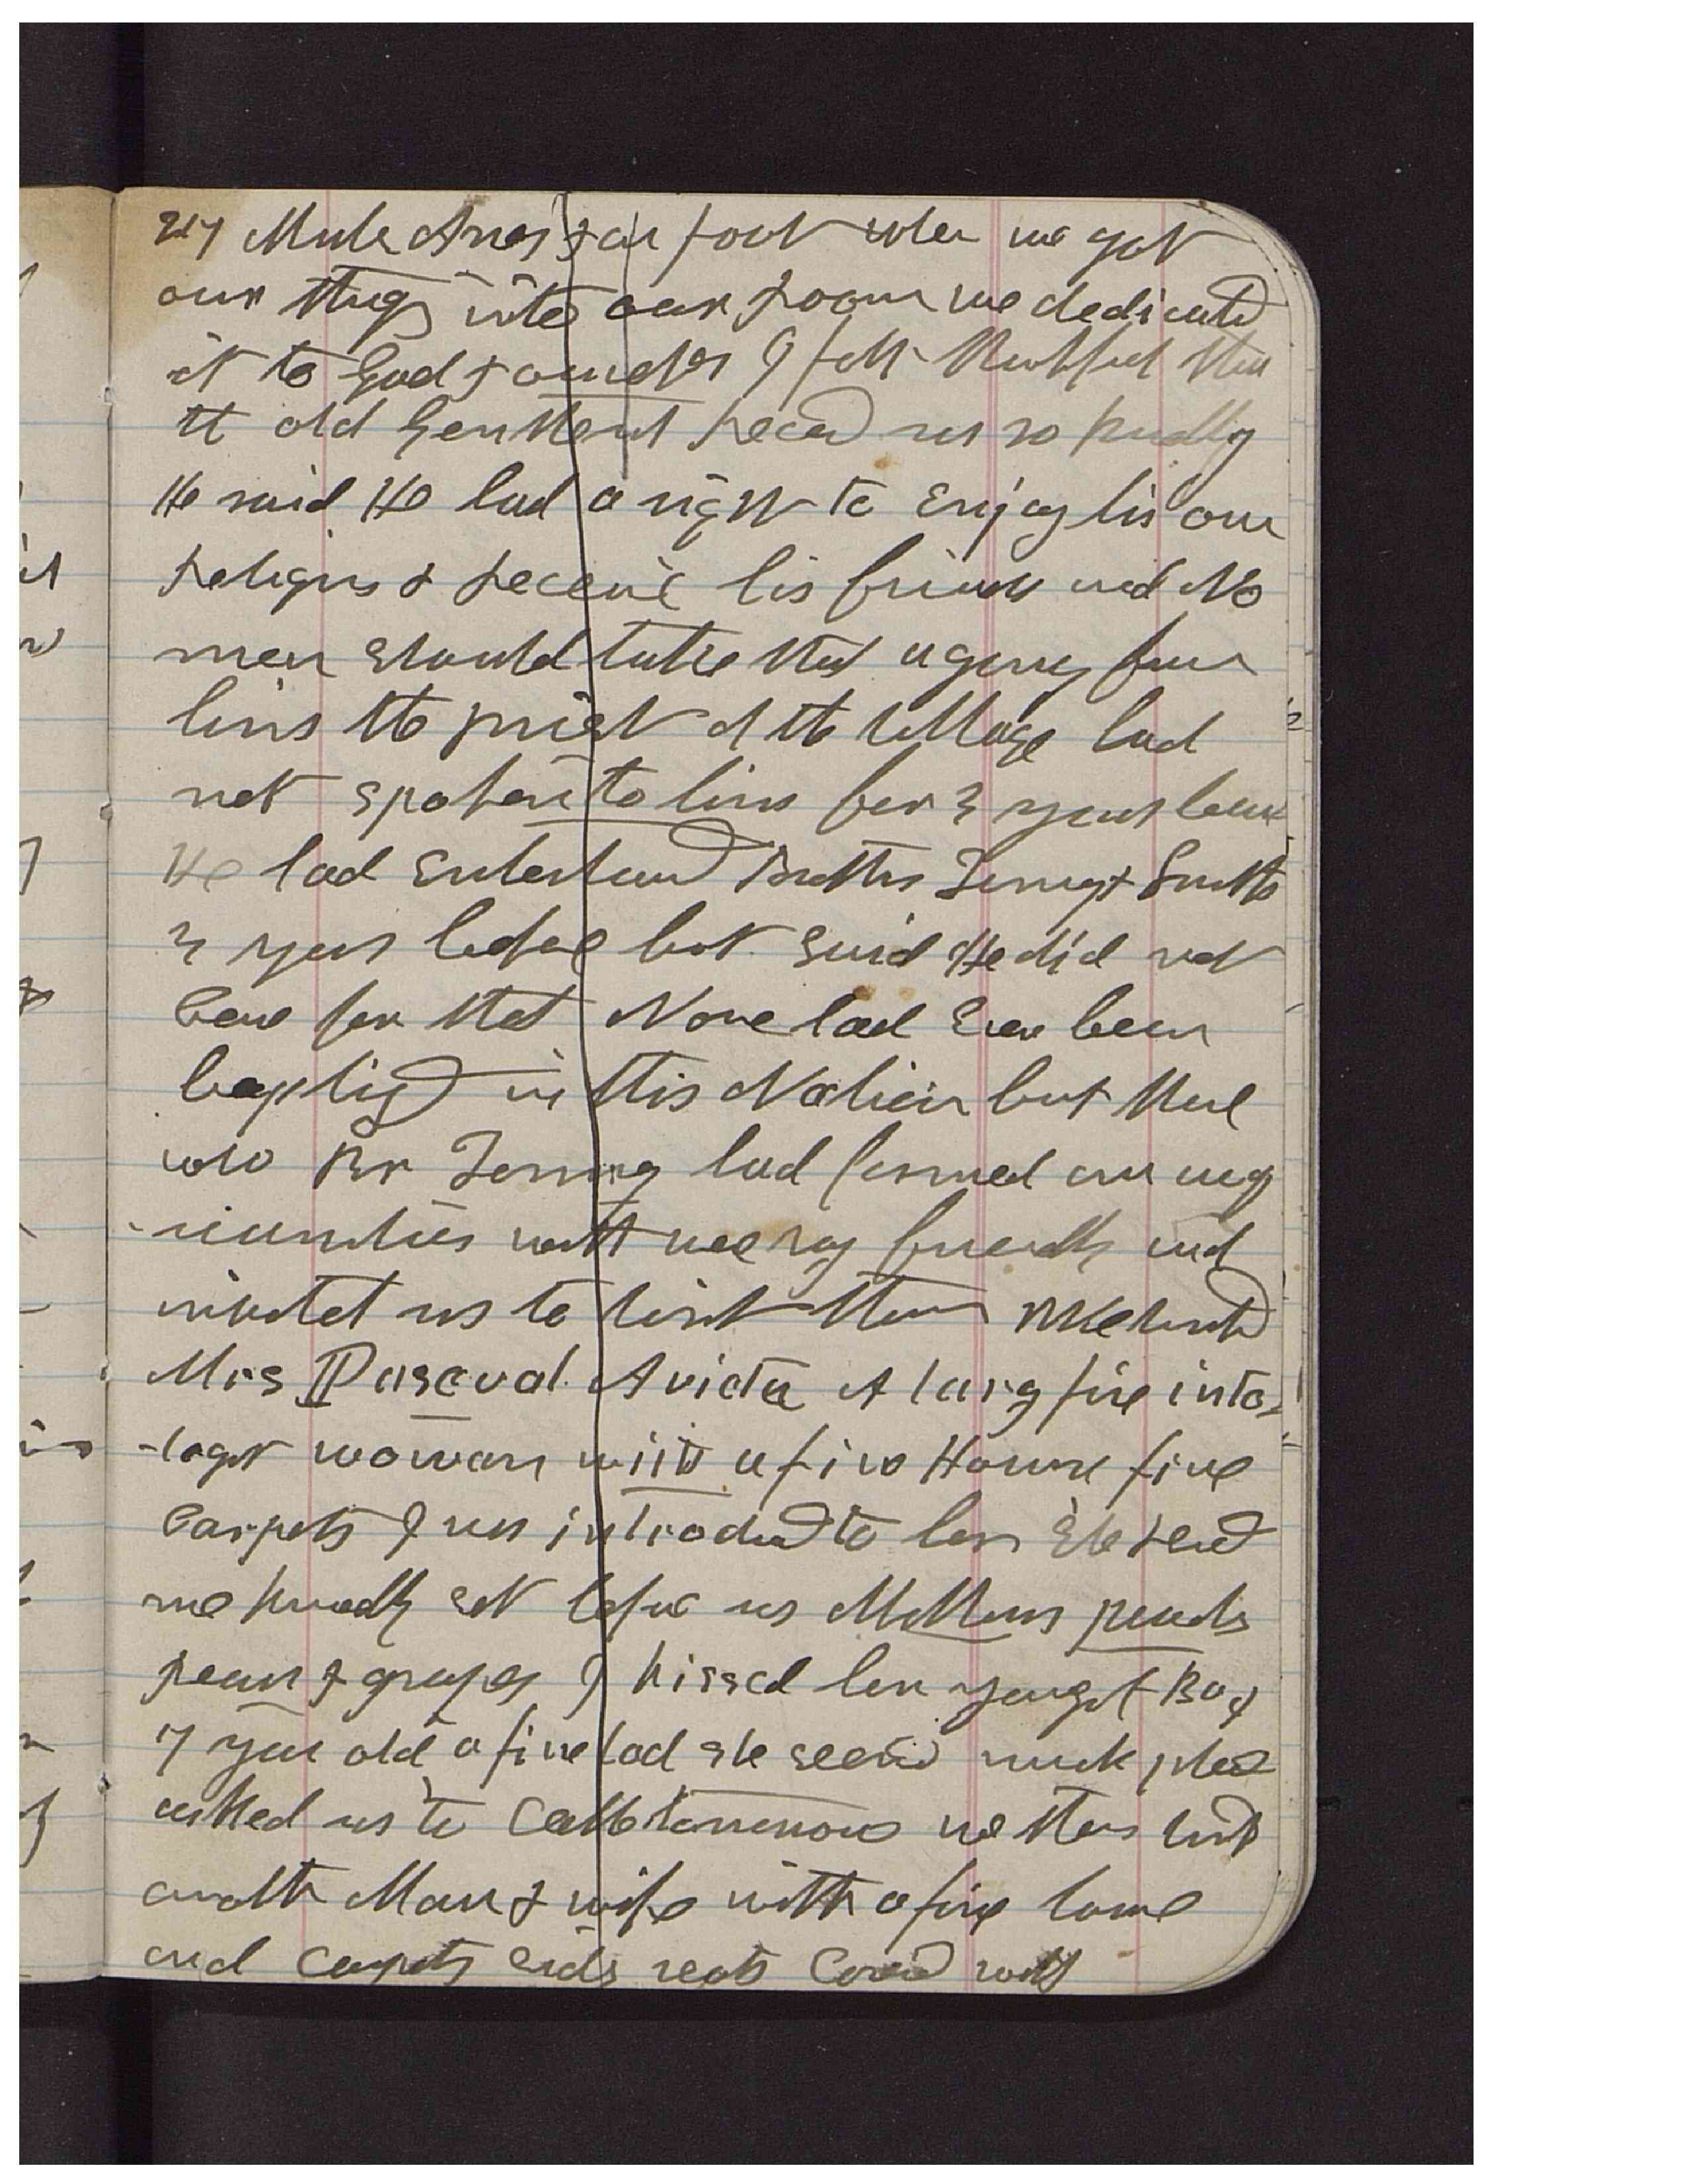 Mule & on foot when we got
our things into our room we dedicated
it to God & ourselves I felt thankful that
the old Gentleman received us so kindly
He said He had a right to Enjoy his own
religion & receive his friends and No
man should take that agency from
him the priest of the village had
not spoken to him for 3 years because
He had Entertained Brothers & Smith
3 years before but said He did not
Care for that None had Ever been
baptized in this Nation but there
who Br had formed an acq
-uaintances with vary friendly and
invited us to visit them We visited
Mrs Pascual Avicta A large fine inta-
-legent woman with a fine House fine
Carpets I was introduced to her She received
me kindly set before us Mellons peaches
pears & grapes I kissed her youngest Boy
7 years old a fine lad she seemed much pleased
asked us to Call tomorrow we then visited
another Man & wife with a fine home
and carpets seats Covered with